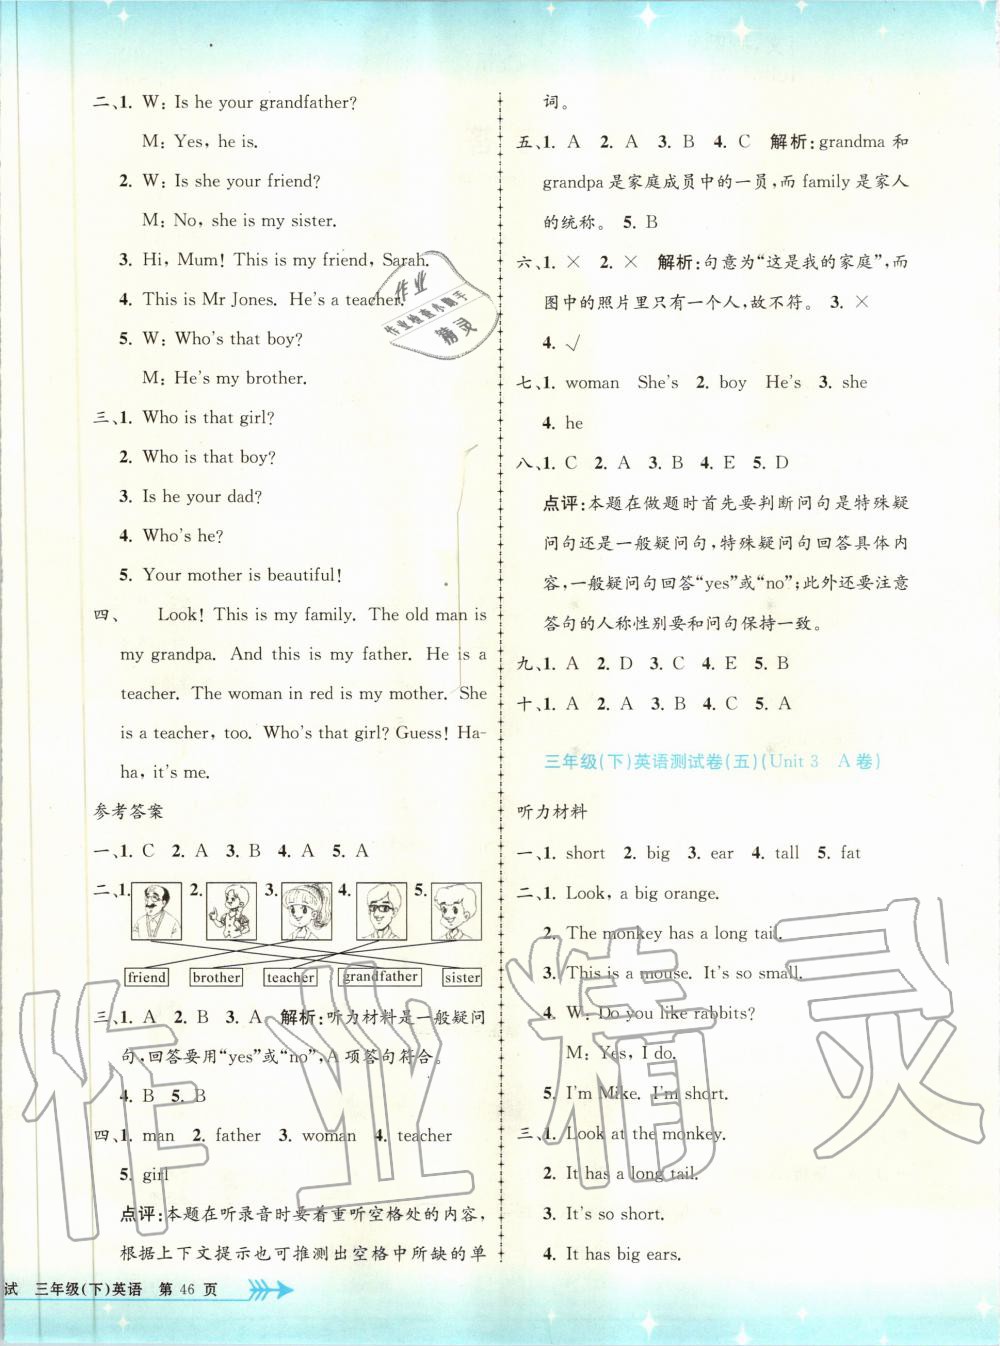 二、1. W: Is he your grandfather?
M: Yes, he is.
2. W: Is she your friend?
M: No, she is my sister.
3. Hi, Mum! This is my friend, Sarah.
4. This is Mr Jones. He's a teacher.
5. W: Who's that boy?
M: He's my brother.
三、1. Who is that girl?
2. Who is that boy?
3. Is he your dad?
4. Who's he?
5. Your mother is beautiful!
四、 Look! This is my family. The old man is
my grandpa. And this is my father. He is a
teacher. The woman in red is my mother. She
is a teacher, too. Who's that girl? Guess! Ha-
ha, it's me.
参考答案
一、1. C 2. A 3. B 4. A 5. A
二、1. 2. 3. 4. 5.
friend brother teacher grandfather sister
三、1. A 2. B 3. A 解析:听力材料是一般疑问
句,回答要用“yes”或“no”,A 项答句符合。
4. B 5. B
四、1. man 2. father 3. woman 4. teacher
5. girl
点评:本题在听录音时要着重听空格处的内容,
根据上下文提示也可推测出空格中所缺的单
试 三年级(下)英语 第 46 页
词。
五、1. A 2. A 3. B 4. C 解析:grandma 和
grandpa 是家庭成员中的一员,而 family 是家人
的统称。 5. B
六、1. × 2. × 解析:句意为“这是我的家庭”,而
图中的照片里只有一个人,故不符。 3. ×
4. √
七、1. woman She's 2. boy He's 3. she
4. he
八、1. C 2. A 3. B 4. E 5. D
点评:本题在做题时首先要判断问句是特殊疑
问句还是一般疑问句,特殊疑问句回答具体内
容,一般疑问句回答“yes”或“no”;此外还要注意
答句的人称性别要和问句保持一致。
九、1. A 2. D 3. C 4. E 5. B
十、1. A 2. A 3. B 4. C 5. A
三年级(下)英语测试卷(五)(Unit 3 A 卷)
听力材料
一、1. short 2. big 3. ear 4. tall 5. fat
二、1. Look, a big orange.
2. The monkey has a long tail.
3. This is a mouse. It's so small.
4. W: Do you like rabbits?
M: Yes, I do.
5. I'm Mike. I'm short.
三、1. Look at the monkey.
2. It has a long tail.
3. It's so short.
4. It has big ears.
作业
作业检查小助手
精灵
作业精灵